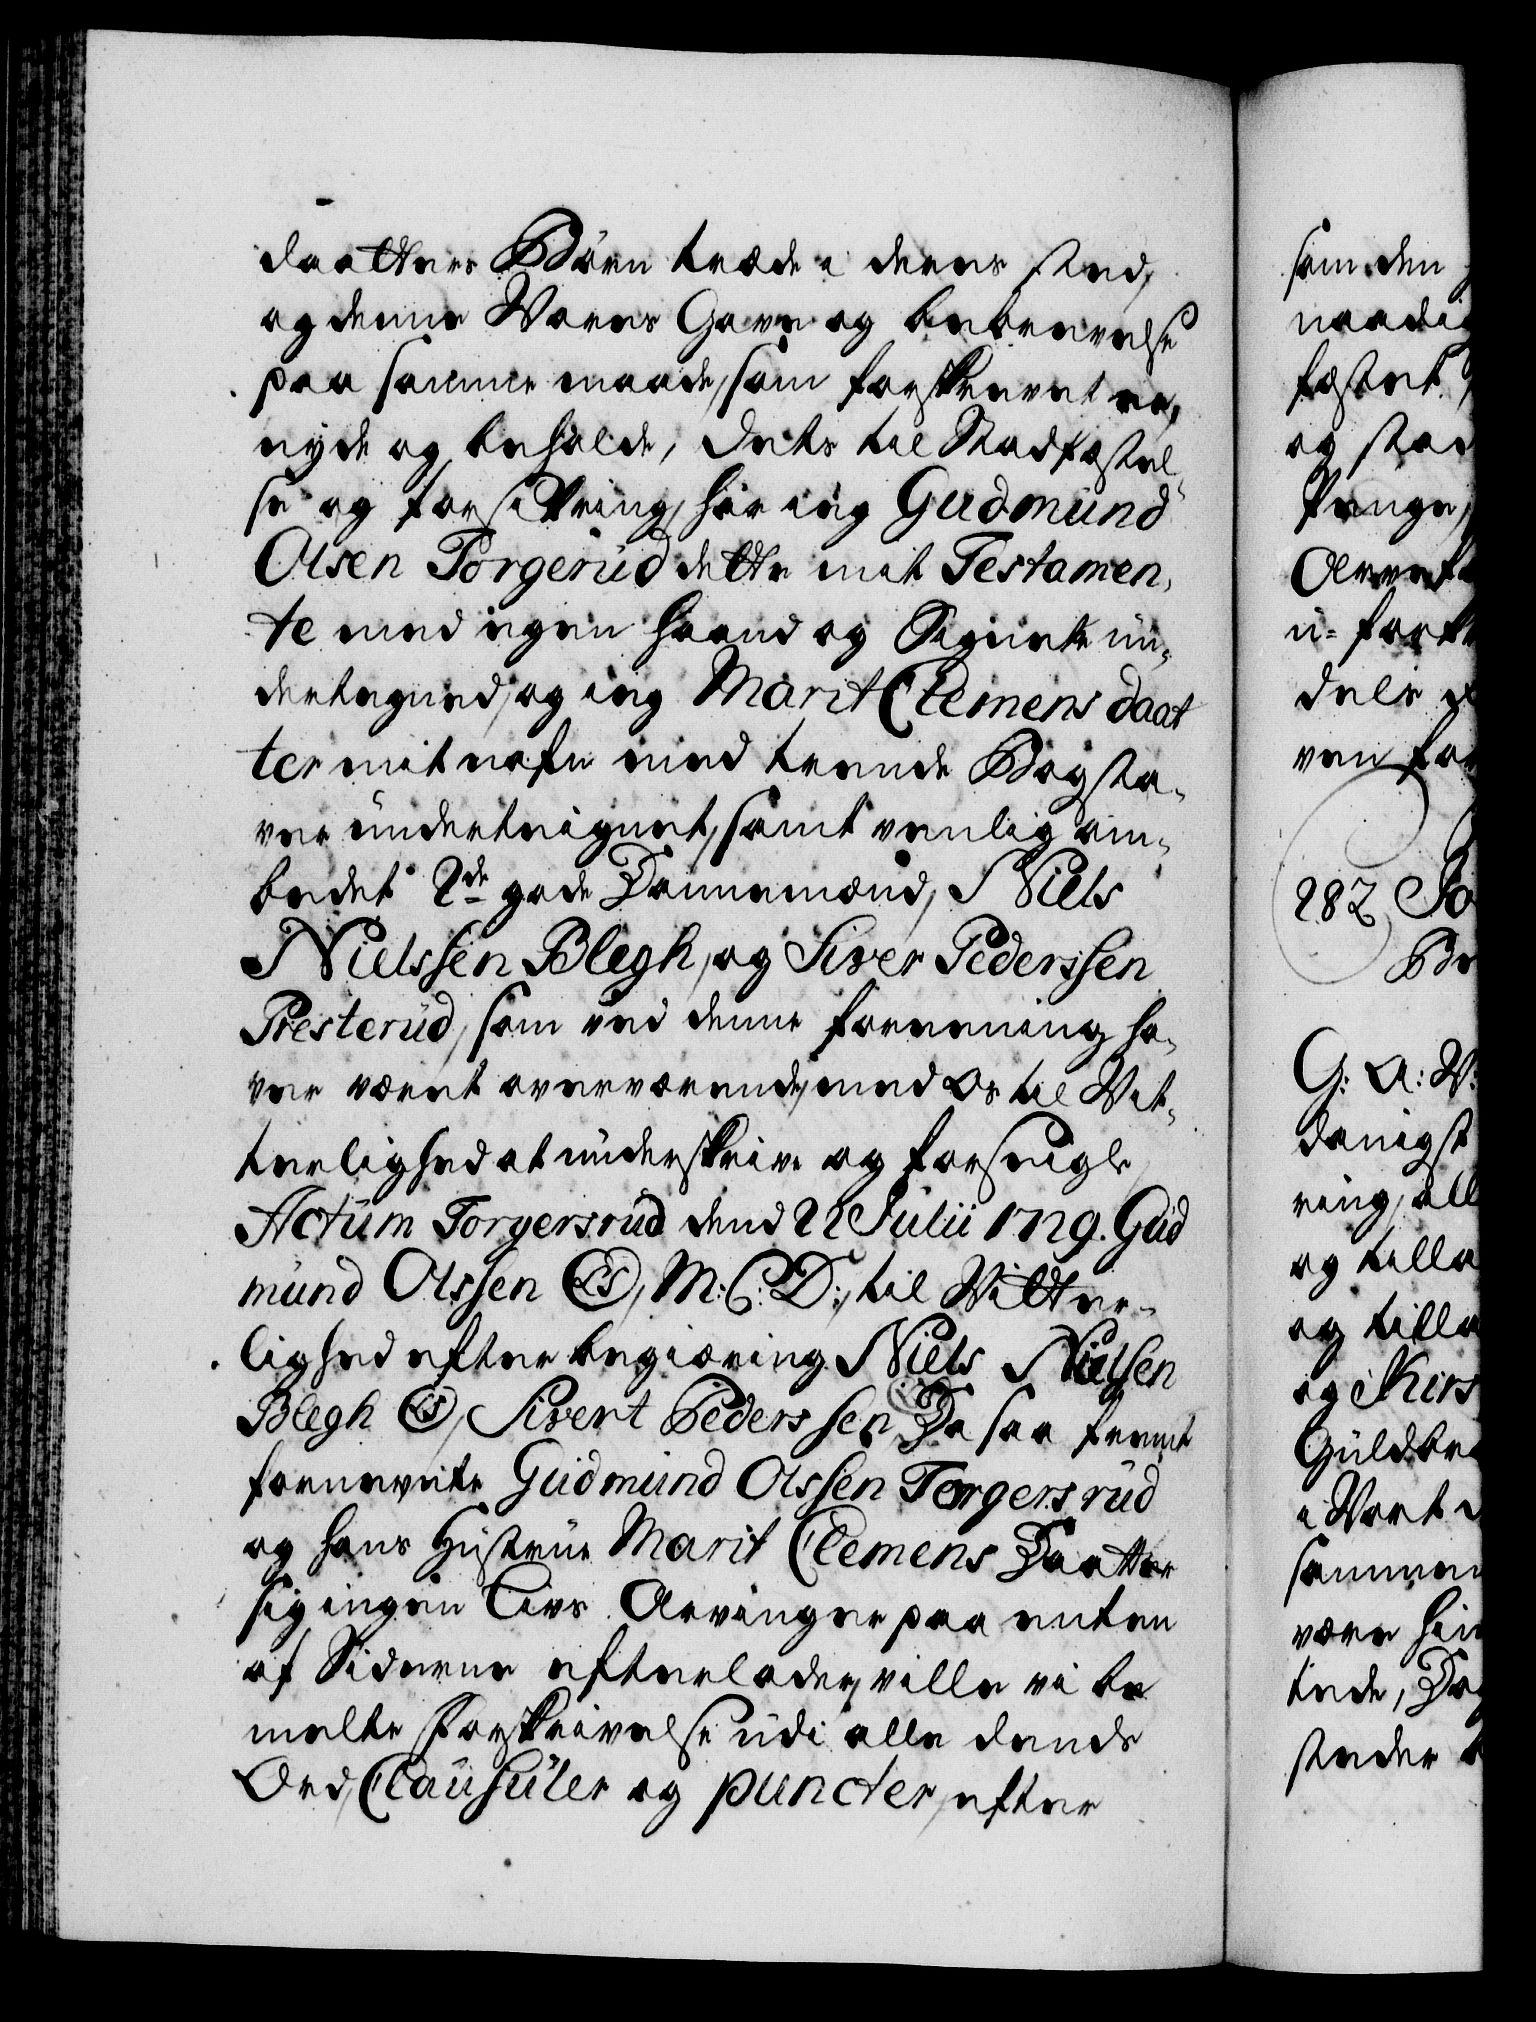 daatters Børn træde i deres sted,
og denne Vores Gave og bebrevelse
paa samme maade, som forskrevet er,
nyde og beholde, Dets til Stadfæstel-
se og forsikring, har ieg Gudmund
Olsen Torgerud dette mit Testamen,
te med egen haand og Signete un-
dertegned, og ieg Marit Clemens daat
ter mit nafn med trende Bogsta-
ver underteignet, samt venlig om-
bedet 2de gode Dannemænd, Niels
Nielssen Blegh, og Siver Pederssen
Presterud, som ved denne foreening ha-
ver været overværende, med Os til Vit-
terlighed at underskrive og forseigle,
Actum Torgersrud dend 22 Julii 1729. Gud
mund Olssen (LS), M: C: D:, til Vitter-
lighed efter begiæring Niels Nielsen
Blegh (LS), Sivert Pederssen (LS) Da saa fremt
fornevnte Gudmund Olssen Torgersrud
og hans Hustrue Marit Clemens Daatter
sig ingen Livs Arvinger paa enten
af Siderne efterlader, ville vi be
melte Forskrivelse udi alle dends
Ord, Clausuler og puncter, efter
som den
naadig
fæstet
og stad
Penge,
282 Jo
Br
G: A: V:
danigst
ring, all
og tilla
og tilla
og Kirs
Guldbra
i Vort
sammen
være hin
stæder